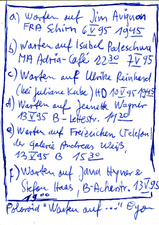 a) Warten auf Jim Avignon
FRA Schirn 6 V 95 1945
b) Warten auf Isabel Paleschwa
MA Adria-Café 1230 7 V 95
c) Warten auf Ulrike Reinhesel
(bei Juliane Kube) HD 10 V 95 1945
d) Warten auf Jeanette Wagner
13 V 95 B- Lettestr. 1120
e) Warten auf Freizeichen (Telefon)
der Galerie Andreas Weiß,
13 V 95 B 1530
f) Warten auf Jana Hyner &
Stefan Haas, B-Acherstr. 13 V 95
1900
Polaroid "Warten auf ..."